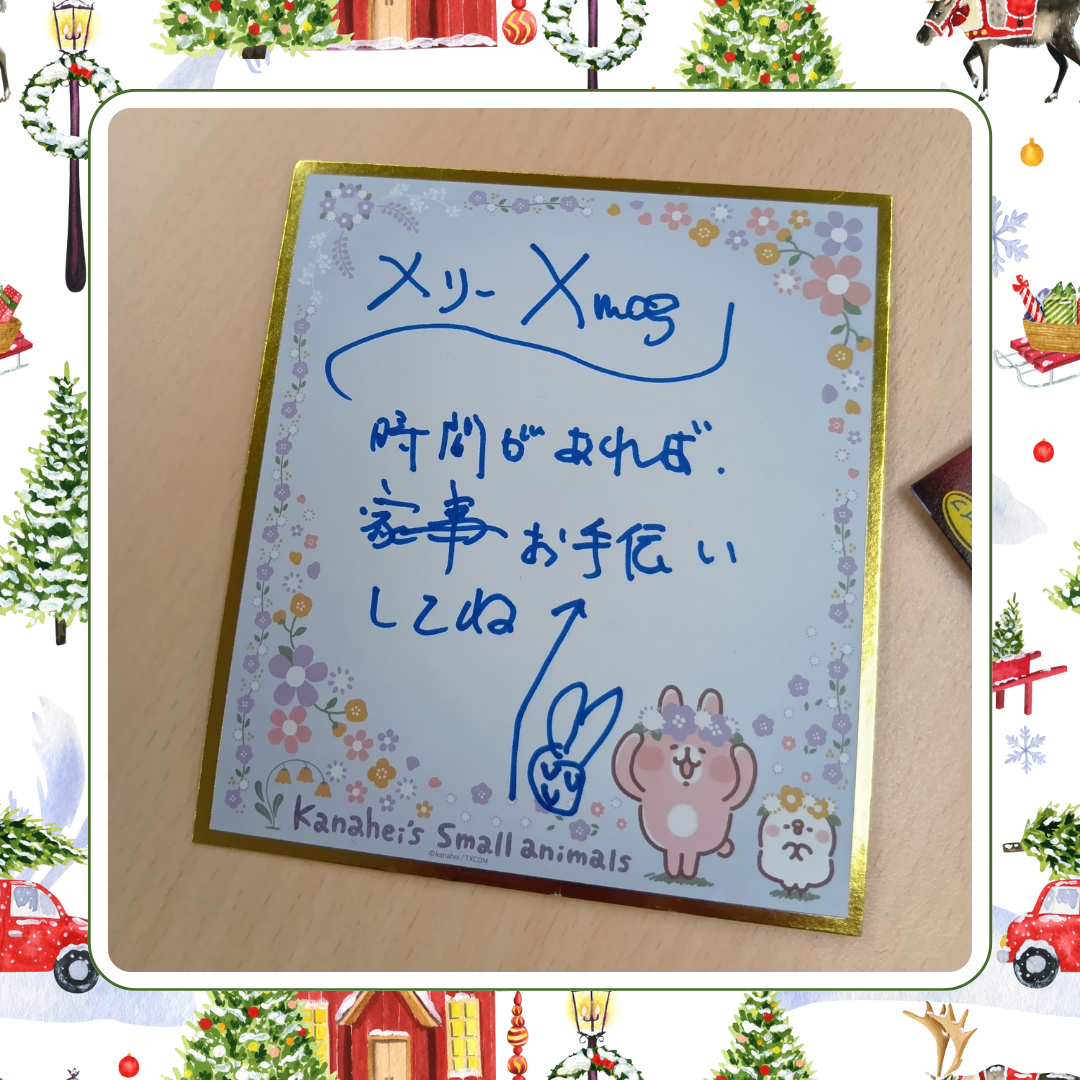 メリー Xmas
時間があれば.
家事お手伝い
してね
Kanahei's Small animals
©kanahei / TXCOM